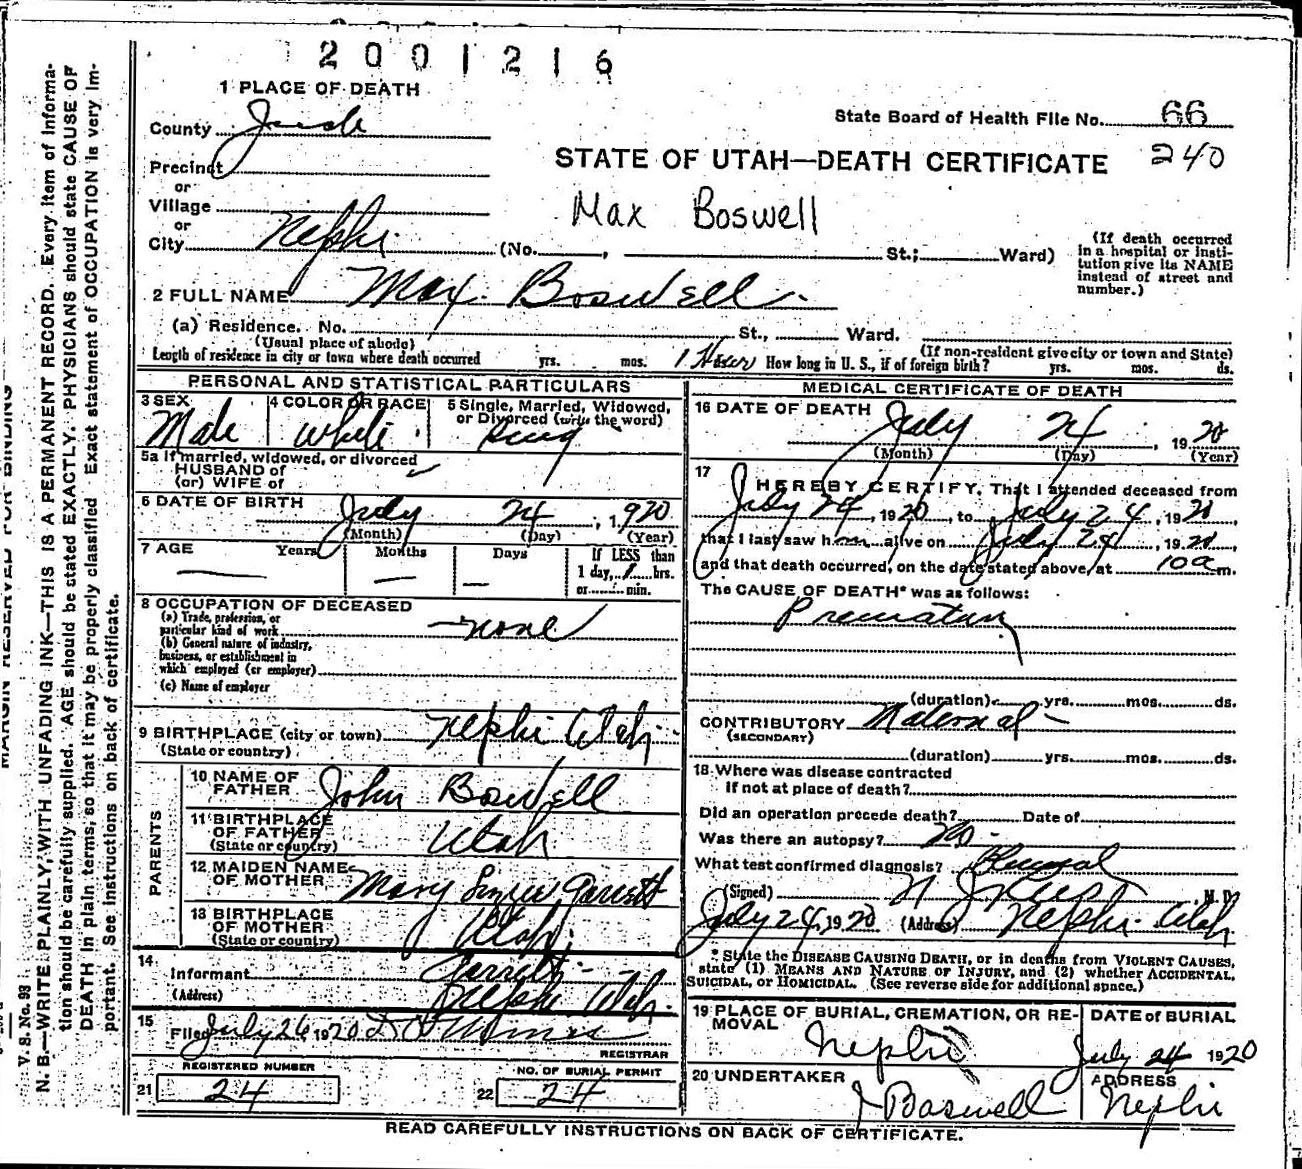 2001216
1 PLACE OF DEATH
County Juab
State Board of Health File No. 66
240
STATE OF UTAH—DEATH CERTIFICATE
Precinct
or
Village
or
Max Boswell
City Nephi (No. , St.; Ward)
(If death occurred
in a hospital or insti-
tution give its NAME
instead of street and
number.)
2 FULL NAME Max Boswell
(a) Residence. No. St., Ward.
(Usual place of abode) (If non-resident give city or town and State)
Length of residence in city or town where death occurred yrs. mos. 1 Hour How long in U. S., if of foreign birth? yrs. mos. ds.
PERSONAL AND STATISTICAL PARTICULARS
3 SEX 4 COLOR OR RACE 5 Single, Married, Widowed,
or Divorced (write the word)
Male White Sing
5a If married, widowed, or divorced
HUSBAND of
(or) WIFE of
6 DATE OF BIRTH July 24, 1920
(Month) (Day) (Year)
7 AGE Years Months Days If LESS than
1 day, 1 hrs.
or min.
8 OCCUPATION OF DECEASED
(a) Trade, profession, or
particular kind of work none
(b) General nature of industry,
business, or establishment in
which employed (or employer)
(c) Name of employer
9 BIRTHPLACE (city or town) Nephi Utah
(State or country)
PARENTS
10 NAME OF
FATHER John Boswell
11 BIRTHPLACE
OF FATHER
(State or country) Utah
12 MAIDEN NAME
OF MOTHER Mary Garrett
13 BIRTHPLACE
OF MOTHER
(State or country) Utah
14
Informant Garrett
(Address) Nephi Utah.
15
Filed July 26 1920
REGISTRAR
REGISTERED NUMBER NO. OF BURIAL PERMIT
21 24 22 24
MEDICAL CERTIFICATE OF DEATH
16 DATE OF DEATH July 24, 1920
(Month) (Day) (Year)
17
I HEREBY CERTIFY, That I attended deceased from
July 24, 1920, to July 24, 1920,
that I last saw him alive on July 24, 1920,
and that death occurred, on the date stated above, at 10 a m.
The CAUSE OF DEATH* was as follows:
Premature
(duration) yrs. mos. ds.
CONTRIBUTORY Maternal -
(SECONDARY)
(duration) yrs. mos. ds.
18 Where was disease contracted
if not at place of death?
Did an operation precede death? Date of
Was there an autopsy? No
What test confirmed diagnosis?
(Signed) M. D.
July 24, 1920 (Address) Nephi Utah
* State the DISEASE CAUSING DEATH, or in deaths from VIOLENT CAUSES,
state (1) MEANS AND NATURE OF INJURY, and (2) whether ACCIDENTAL,
SUICIDAL, or HOMICIDAL. (See reverse side for additional space.)
19 PLACE OF BURIAL, CREMATION, OR RE-
MOVAL
DATE of BURIAL
Nephi July 24 1920
20 UNDERTAKER ADDRESS
J Boswell Nephi
READ CAREFULLY INSTRUCTIONS ON BACK OF CERTIFICATE.
MARGIN RESERVED FOR BINDING
V. S. No. 93
N. B.—WRITE PLAINLY, WITH UNFADING INK—THIS IS A PERMANENT RECORD. Every item of informa-
tion should be carefully supplied. AGE should be stated EXACTLY. PHYSICIANS should state CAUSE OF
DEATH in plain terms, so that it may be properly classified. Exact statement of OCCUPATION is very im-
portant. See instructions on back of certificate.